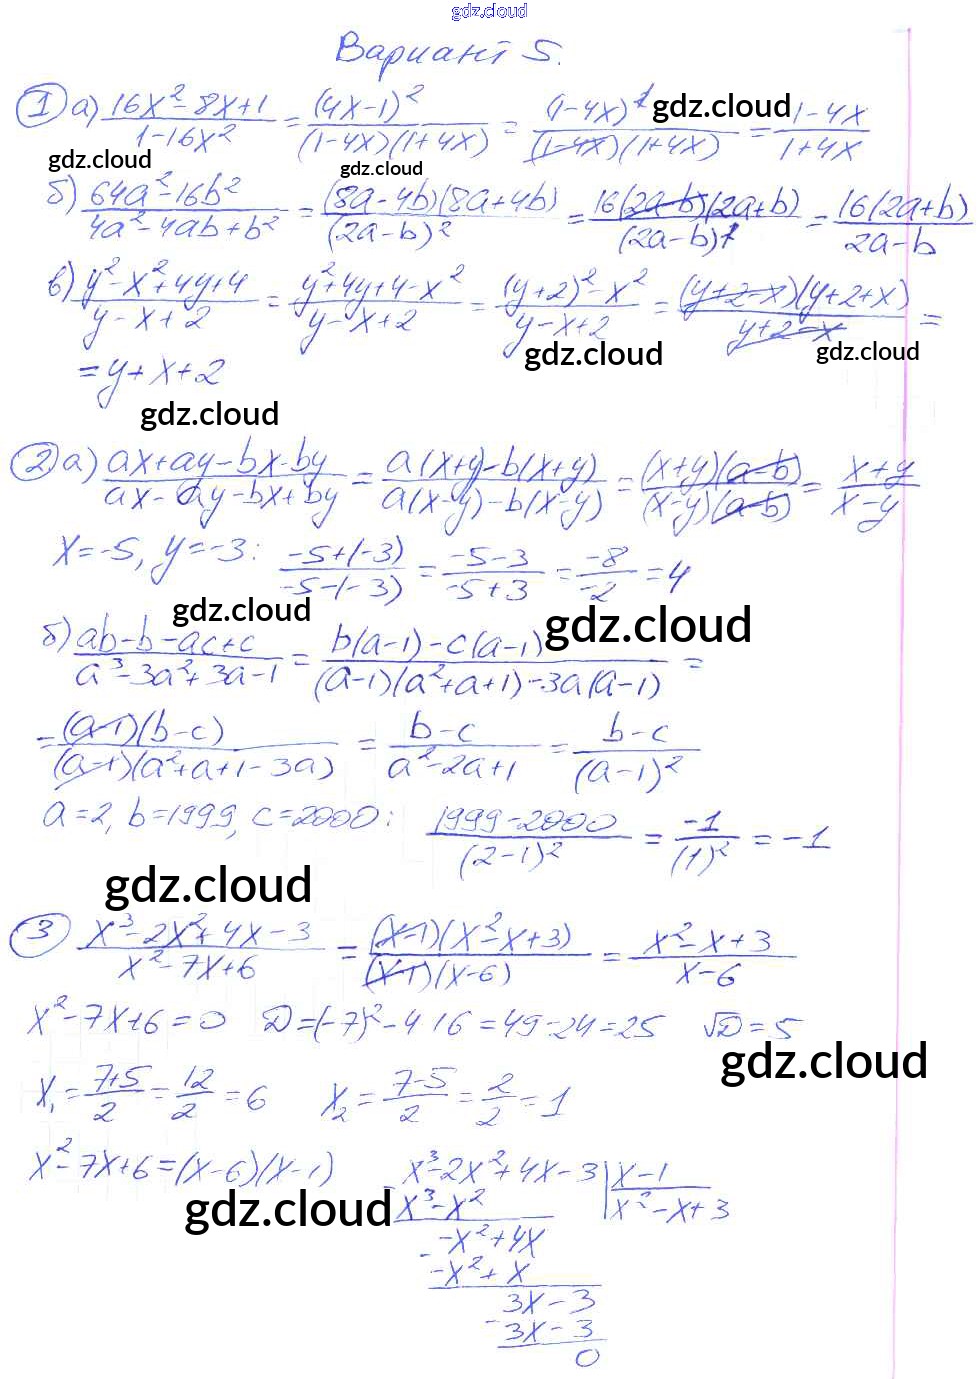 gdz.cloud
Вариант 5.
1) а) (16x²-8x+1)/(1-16x²) = (4x-1)²/((1-4x)(1+4x)) = (1-4x)²/((1-4x)(1+4x)) = (1-4x)/(1+4x)
gdz.cloud
gdz.cloud gdz.cloud
б) (64a²-16b²)/(4a²-4ab+b²) = ((8a-4b)(8a+4b))/(2a-b)² = (16(2a-b)(2a+b))/(2a-b)² = (16(2a+b))/(2a-b)
в) (y²-x²+4y+4)/(y-x+2) = (y²+4y+4-x²)/(y-x+2) = ((y+2)²-x²)/(y-x+2) = ((y+2-x)(y+2+x))/(y+2-x) =
gdz.cloud gdz.cloud
= y+x+2
gdz.cloud
2) а) (ax+ay-bx-by)/(ax-ay-bx+by) = (a(x+y)-b(x+y))/(a(x-y)-b(x-y)) = ((x+y)(a-b))/((x-y)(a-b)) = (x+y)/(x-y)
x=-5, y=-3: (-5+(-3))/(-5-(-3)) = (-5-3)/(-5+3) = -8/-2 = 4
gdz.cloud gdz.cloud
б) (ab-b-ac+c)/(a³-3a²+3a-1) = (b(a-1)-c(a-1))/((a-1)(a²+a+1)-3a(a-1)) =
= ((a-1)(b-c))/((a-1)(a²+a+1-3a)) = (b-c)/(a²-2a+1) = (b-c)/(a-1)²
a=2, b=1999, c=2000: (1999-2000)/(2-1)² = -1/(1)² = -1
gdz.cloud
3) (x³-2x²+4x-3)/(x²-7x+6) = ((x-1)(x²-x+3))/((x-1)(x-6)) = (x²-x+3)/(x-6)
x²-7x+6=0 D=(-7)²-4·1·6=49-24=25 √D=5
gdz.cloud
x₁=(7+5)/2=12/2=6 x₂=(7-5)/2=2/2=1
x²-7x+6=(x-6)(x-1) x³-2x²+4x-3 | x-1
gdz.cloud x³-x² | x²-x+3
-x²+4x
-x²+x
3x-3
3x-3
0